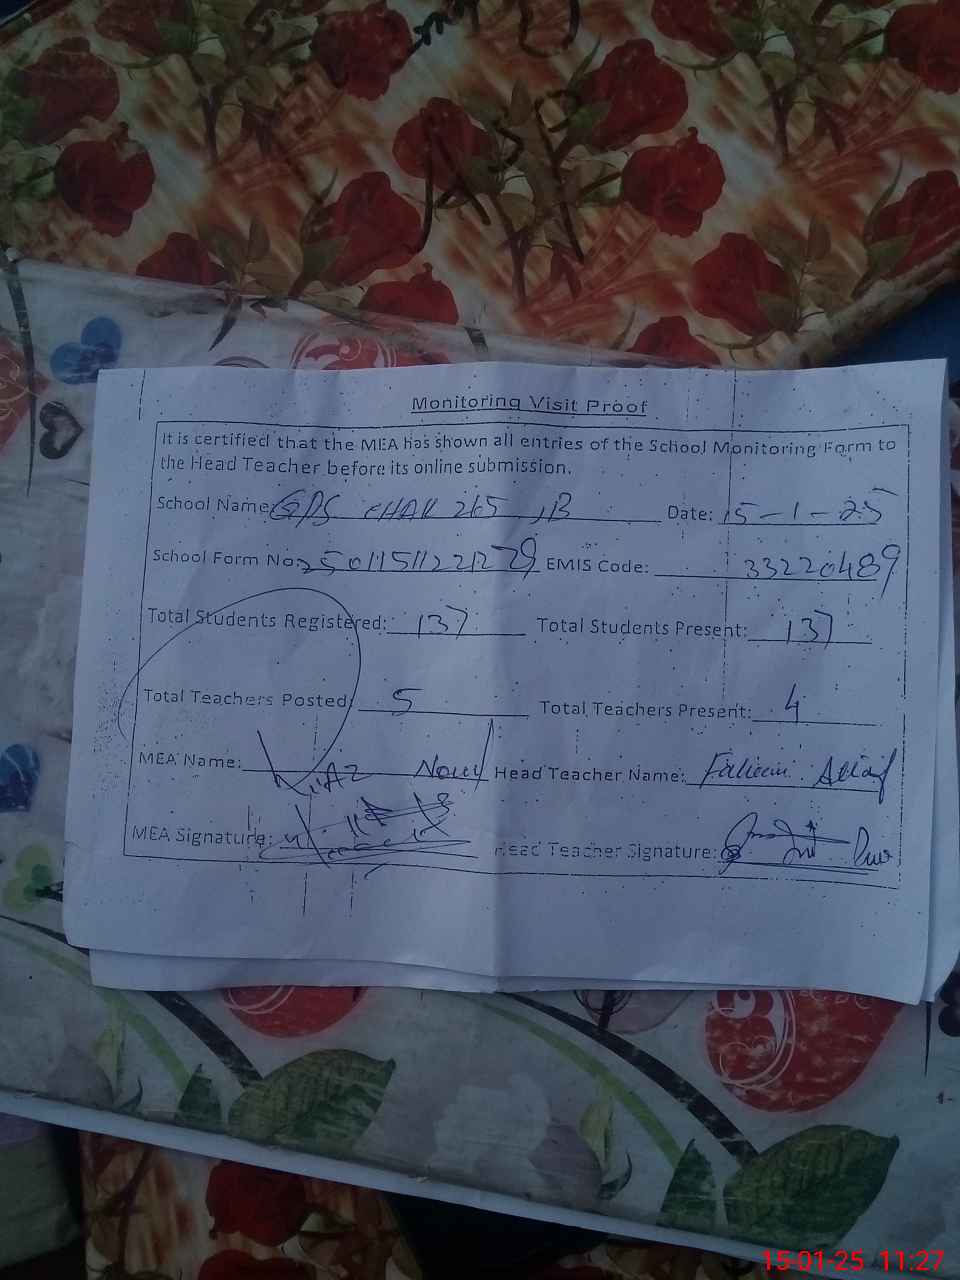 Monitoring Visit Proof
It is certified that the MEA has shown all entries of the School Monitoring Form to
the Head Teacher before its online submission.
School Name: GPS CHAK 265 JB Date: 15-1-25
School Form No: 25011511221229 EMIS Code: 33220489
Total Students Registered: 137 Total Students Present: 137
Total Teachers Posted: 5 Total Teachers Present: 4
MEA Name: Head Teacher Name: Faheem
MEA Signature: Head Teacher Signature:
15-01-25 11:27